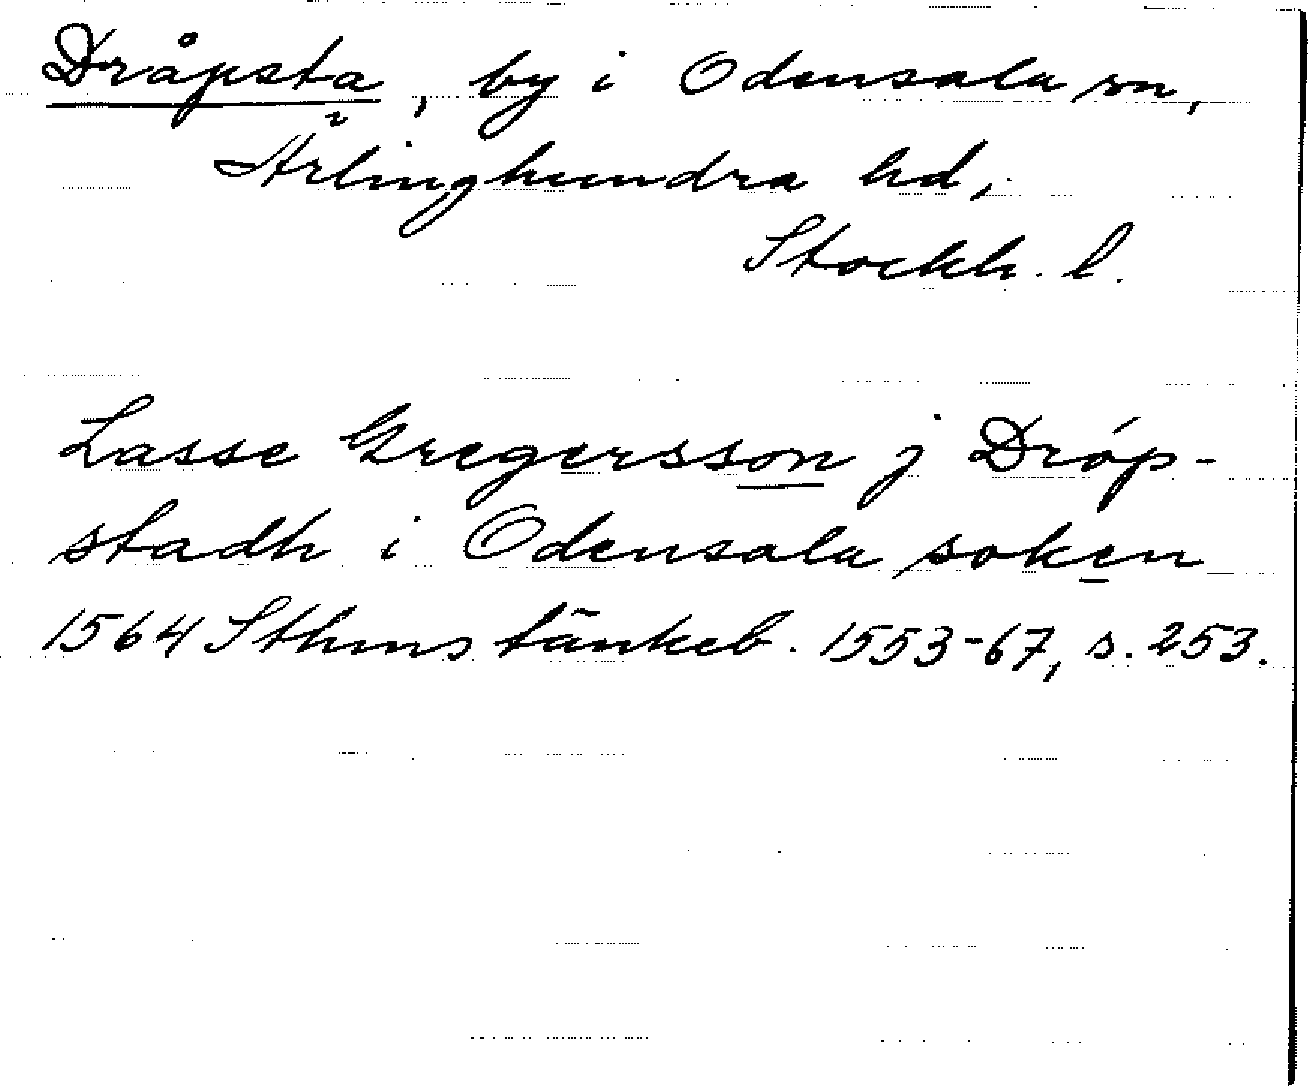 Dråpsta, by i Odensala sn,
Ärlinghundra hd,
Stockh. l.
Lasse Gregersson j Dróp-
stadh i Odensala soken
1564 Sthms tänkeb. 1553-67, s. 253.